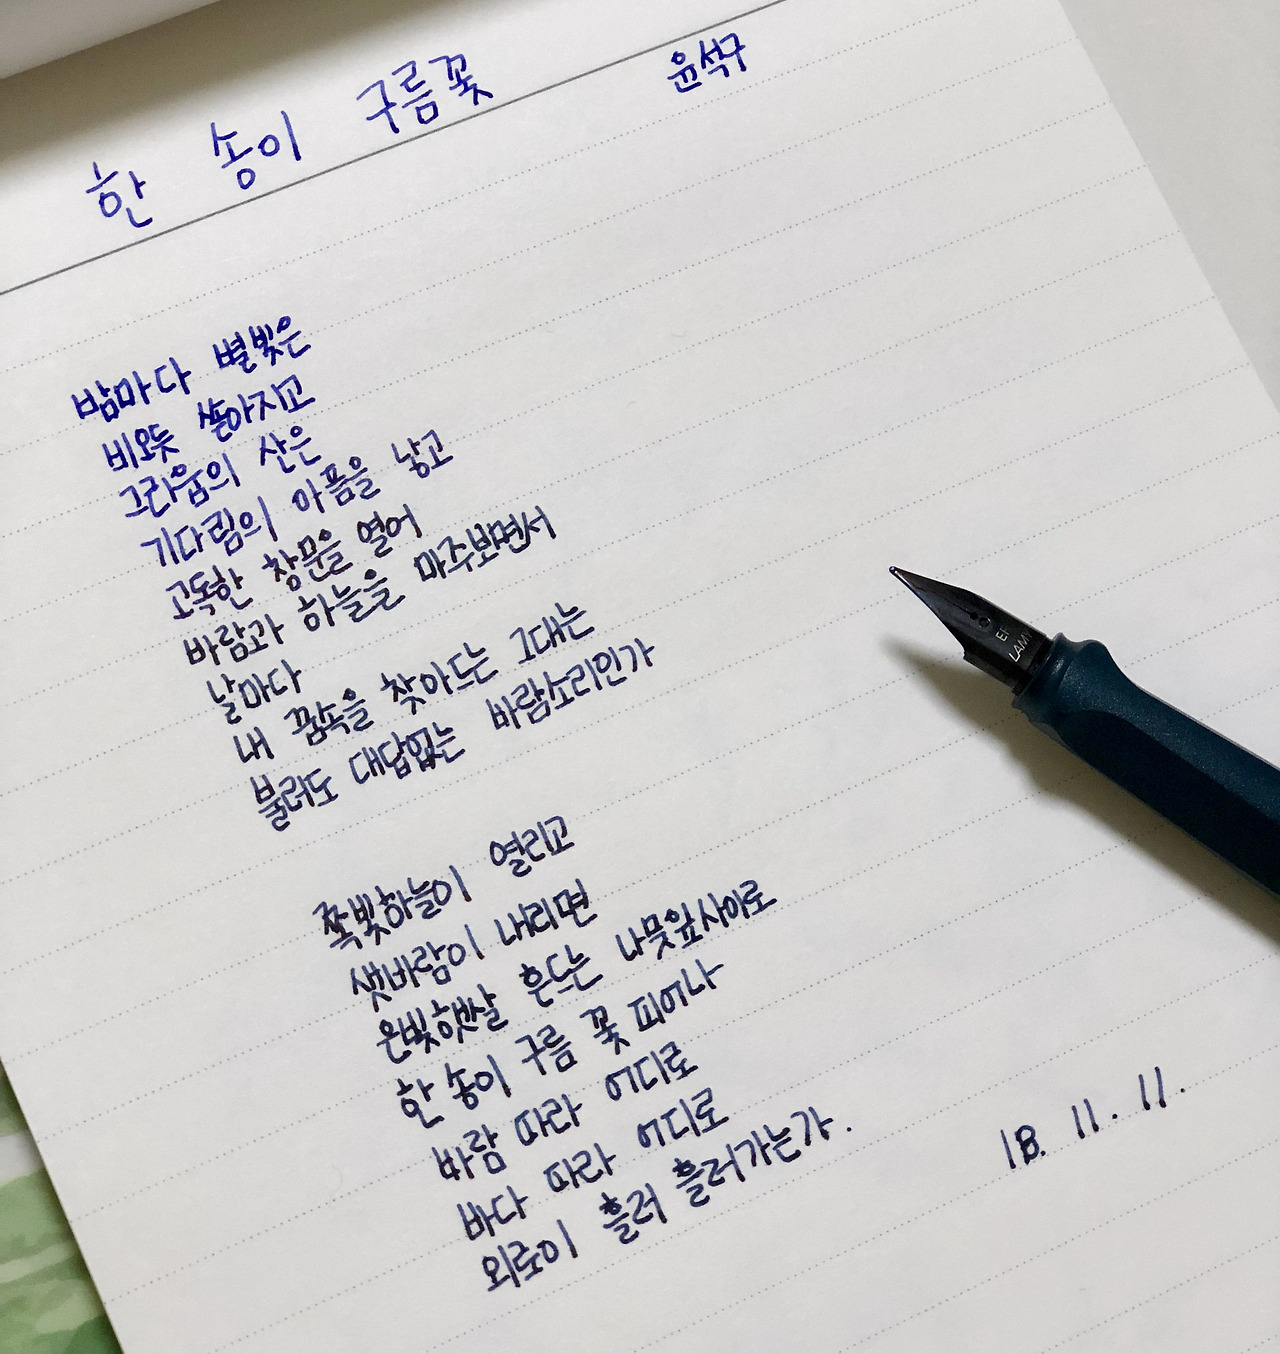 한 송이 구름꽃 윤석구
밤마다 별빛은
비오듯 쏟아지고
그리움의 산은
기다림의 아픔을 낳고
고독한 창문을 열어
바람과 하늘을 마주보면서
날마다
내 꿈속을 찾아드는 그대는
불러도 대답없는 바람소리인가
쪽빛하늘이 열리고
샛바람이 내리면
은빛햇살 흔드는 나뭇잎사이로
한 송이 구름 꽃 피어나
바람 따라 어디로
바다 따라 어디로
외로이 흘러 흘러가는가.
18. 11. 11.
EF
LAMY